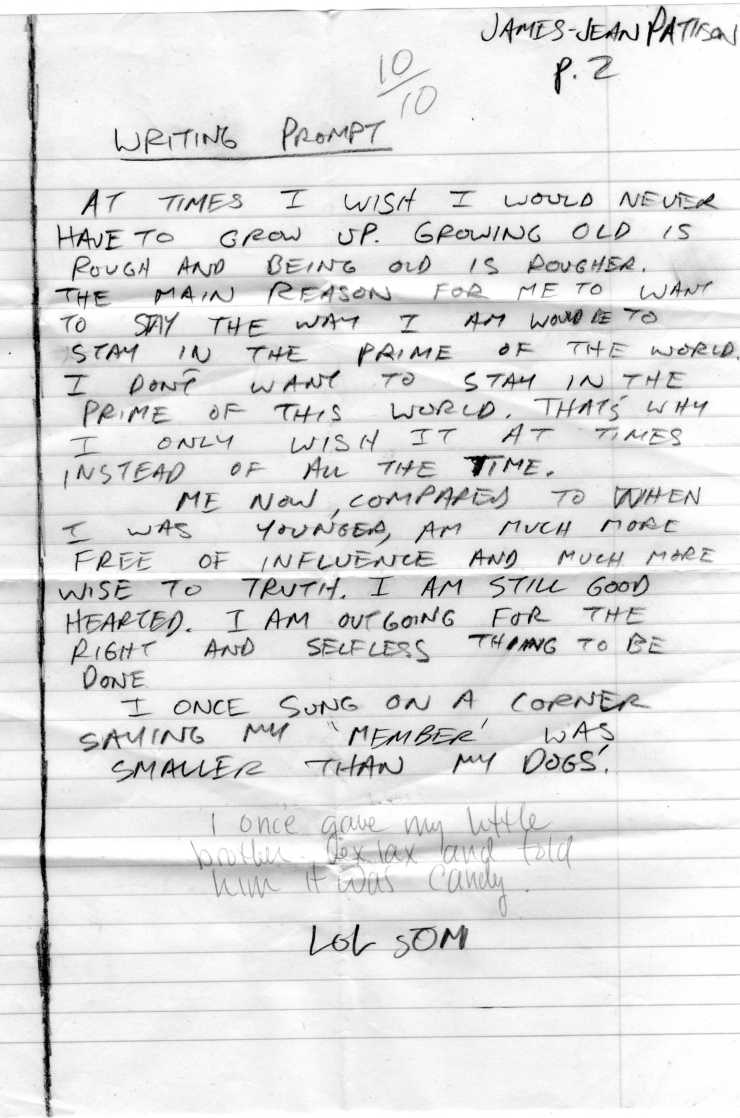 JAMES-JEAN PATTISON
P. 2
10/10
WRITING PROMPT
AT TIMES I WISH I WOULD NEVER
HAVE TO GROW UP. GROWING OLD IS
ROUGH AND BEING OLD IS ROUGHER.
THE MAIN REASON FOR ME TO WANT
TO STAY THE WAY I AM WOULD BE TO
STAY IN THE PRIME OF THE WORLD.
I DON'T WANT TO STAY IN THE
PRIME OF THIS WORLD. THAT'S WHY
I ONLY WISH IT AT TIMES
INSTEAD OF ALL THE TIME.
ME NOW, COMPARED TO WHEN
I WAS YOUNGER, AM MUCH MORE
FREE OF INFLUENCE AND MUCH MORE
WISE TO TRUTH. I AM STILL GOOD
HEARTED. I AM OUTGOING FOR THE
RIGHT AND SELFLESS THING TO BE
DONE
I ONCE SUNG ON A CORNER
SAYING MY 'MEMBER' WAS
SMALLER THAN MY DOGS'.
I once gave my little
brother lax and told
him it was candy.
LOL